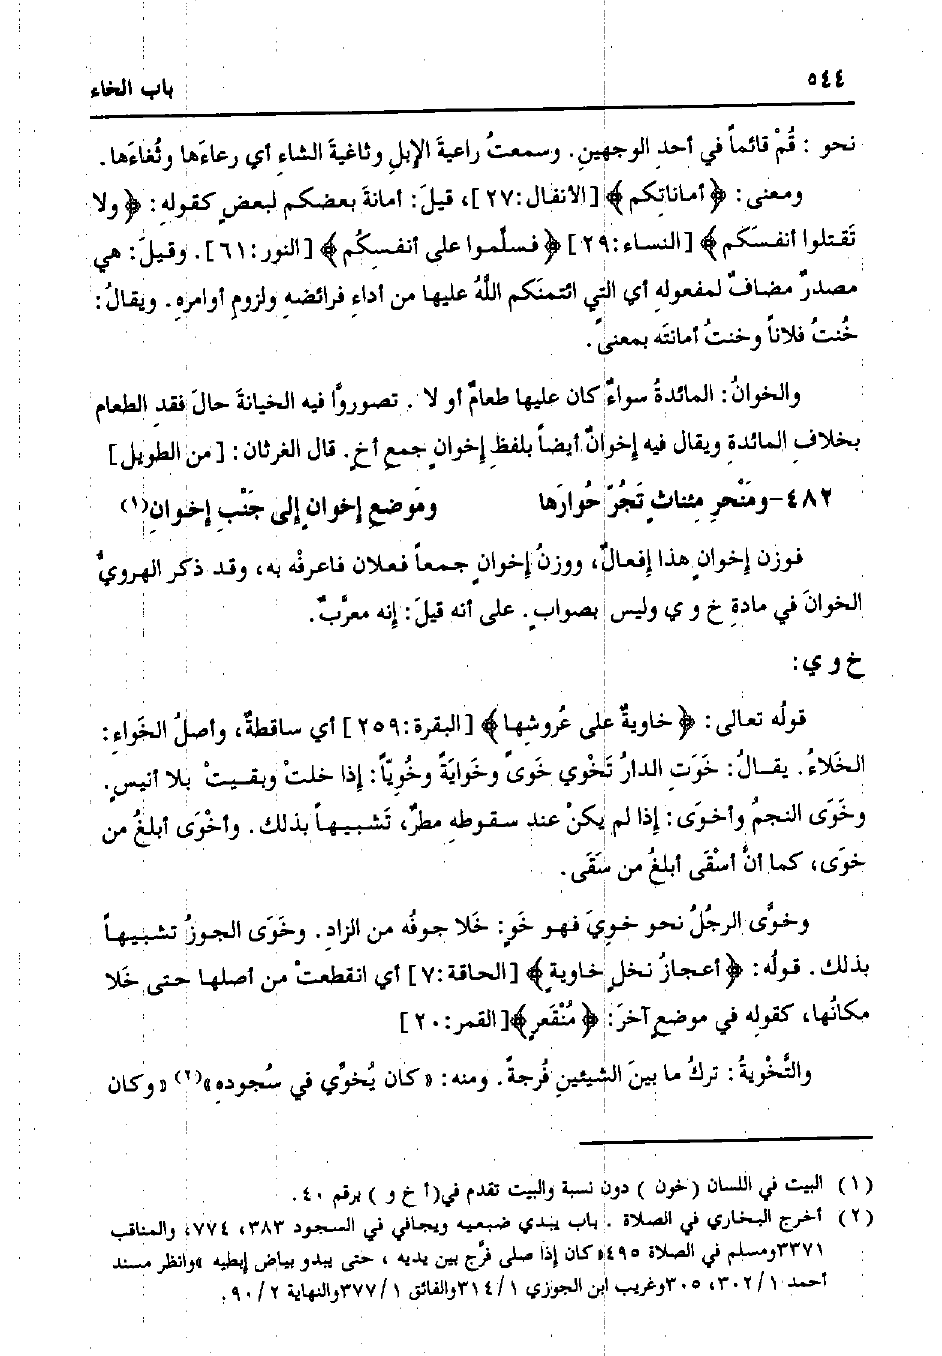 ٥٤٤
باب الخاء
نحو : قُمْ قائماً في أحدِ الوجهينِ. وسمعتُ راعيةَ الإبلِ وثاغيةَ الشاءِ أي رعاءَها وثُغاءَها.
ومعنى: ﴿أماناتِكم﴾ [الأنفال:٢٧]، قيلَ: أمانةَ بعضكم لبعضٍ كقولهِ: ﴿ولا
تَقتلوا أنفسَكم﴾ [النساء:٢٩] ﴿فسلِّموا على أنفسِكُم﴾ [النور:٦١]. وقيلَ: هي
مصدرٌ مضافٌ لمفعولهِ أي التي ائتمنَكم اللَّهُ عليها من أداءِ فرائضهِ ولزومِ أوامرهِ. ويقالُ:
خُنتُ فلاناً وخنتُ أمانتَه بمعنىً.
والخوانُ: المائدةُ سواءٌ كان عليها طعامٌ أو لا . تصوروا فيه الخيانةَ حالَ فقدِ الطعام
بخلافِ المائدةِ ويقال فيه إخوانٌ أيضاً بلفظِ إخوانٍ جمع أخٍ. قال الغرثان: [من الطويل]
٤٨٢-ومَنْحرِ مِئناثٍ تَجُرّ حُوارَها ومَوضعِ إخوانٍ إلى جَنْبِ إخوانِ(١)
فوزن إخوانٍ هذا إفعالٌ، ووزنُ إخوانٍ جمعاً فعلان فاعرفْه به، وقد ذكر الهرويُّ
الخوانَ في مادةِ خ و ي وليس بصوابٍ. على أنه قيلَ: إنه معرَّبٌ.
خ و ي:
قولُه تعالى: ﴿خاويةٌ على عُروشِها﴾ [البقرة:٢٥٩] أي ساقطةٌ، وأصلُ الخَواءِ:
الخَلاءُ. يقالُ: خَوَتِ الدارُ تَخْوي خَوىً وخَوايَةً وخُوِيّاً: إذا خلتْ وبقيتْ بلا أنيسٍ.
وخَوَى النجمُ وأخوَى: إذا لم يكنْ عند سقوطهِ مطرٌ، تَشبيهاً بذلك. وأخْوَى أبلغُ من
خوَى، كما أنَّ أسْقَى أبلغُ من سَقَى.
وخوَّى الرجُلُ نحو خوِيَ فهو خَوٍ: خَلا جوفُه من الزادِ. وخَوَى الجوزُ تشبيهاً
بذلك. قولُه: ﴿أعجازُ نخلٍ خاويةٍ﴾ [الحاقة:٧] أي انقطعتْ من أصلها حتى خَلا
مكانُها، كقولهِ في موضعٍ آخرَ: ﴿مُنْقَعرٍ﴾[القمر:٢٠]
والتَّخْويةُ: تركُ ما بينَ الشيئينِ فُرجةً. ومنه: «كان يُخوِّي في سُجودهِ»(٢) «وكان
(١) البيت في اللسان (خون ) دون نسبة والبيت تقدم في(أ خ و ) برقم ٤٠.
(٢) أخرج البخاري في الصلاة . باب يبدي ضبعيه ويجافي في السجود ٣٨٣، ٧٧٤، والمناقب
٣٣٧١ومسلم في الصلاة ٤٩٥«كان إذا صلى فرَّج بين يديه ، حتى يبدو بياض إبطيه »وانظر مسند
أحمد ٣٠٢/١، ٣٠٥وغريب ابن الجوزي ٣١٤/١والفائق ٣٧٧/١والنهاية ٩٠/٢.